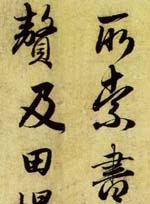 所索書
贅及田